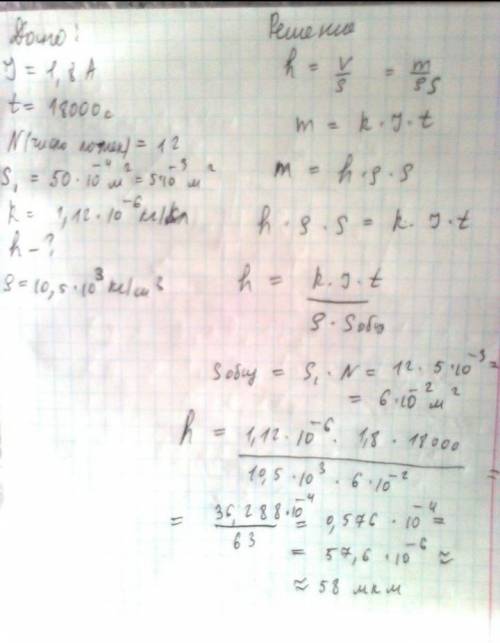 Дано:
J = 1,8 A
t = 18000 c
N(число ложек) = 12
S₁ = 50·10⁻⁴ м² = 5·10⁻³ м²
k = 1,12·10⁻⁶ кг/Кл
h - ?
ρ = 10,5·10³ кг/м³
Решение
h = V/S = m/ρS
m = k·J·t
m = h·ρ·S
h·ρ·S = k·J·t
h = k·J·t
ρ·Sобщ
Sобщ = S₁·N = 12·5·10⁻³ =
= 6·10⁻² м²
h = 1,12·10⁻⁶·1,8·18000
10,5·10³·6·10⁻² =
= 36,288·10⁻⁴/63 = 0,576·10⁻⁴ =
= 57,6·10⁻⁶ ≈
≈ 58 мкм